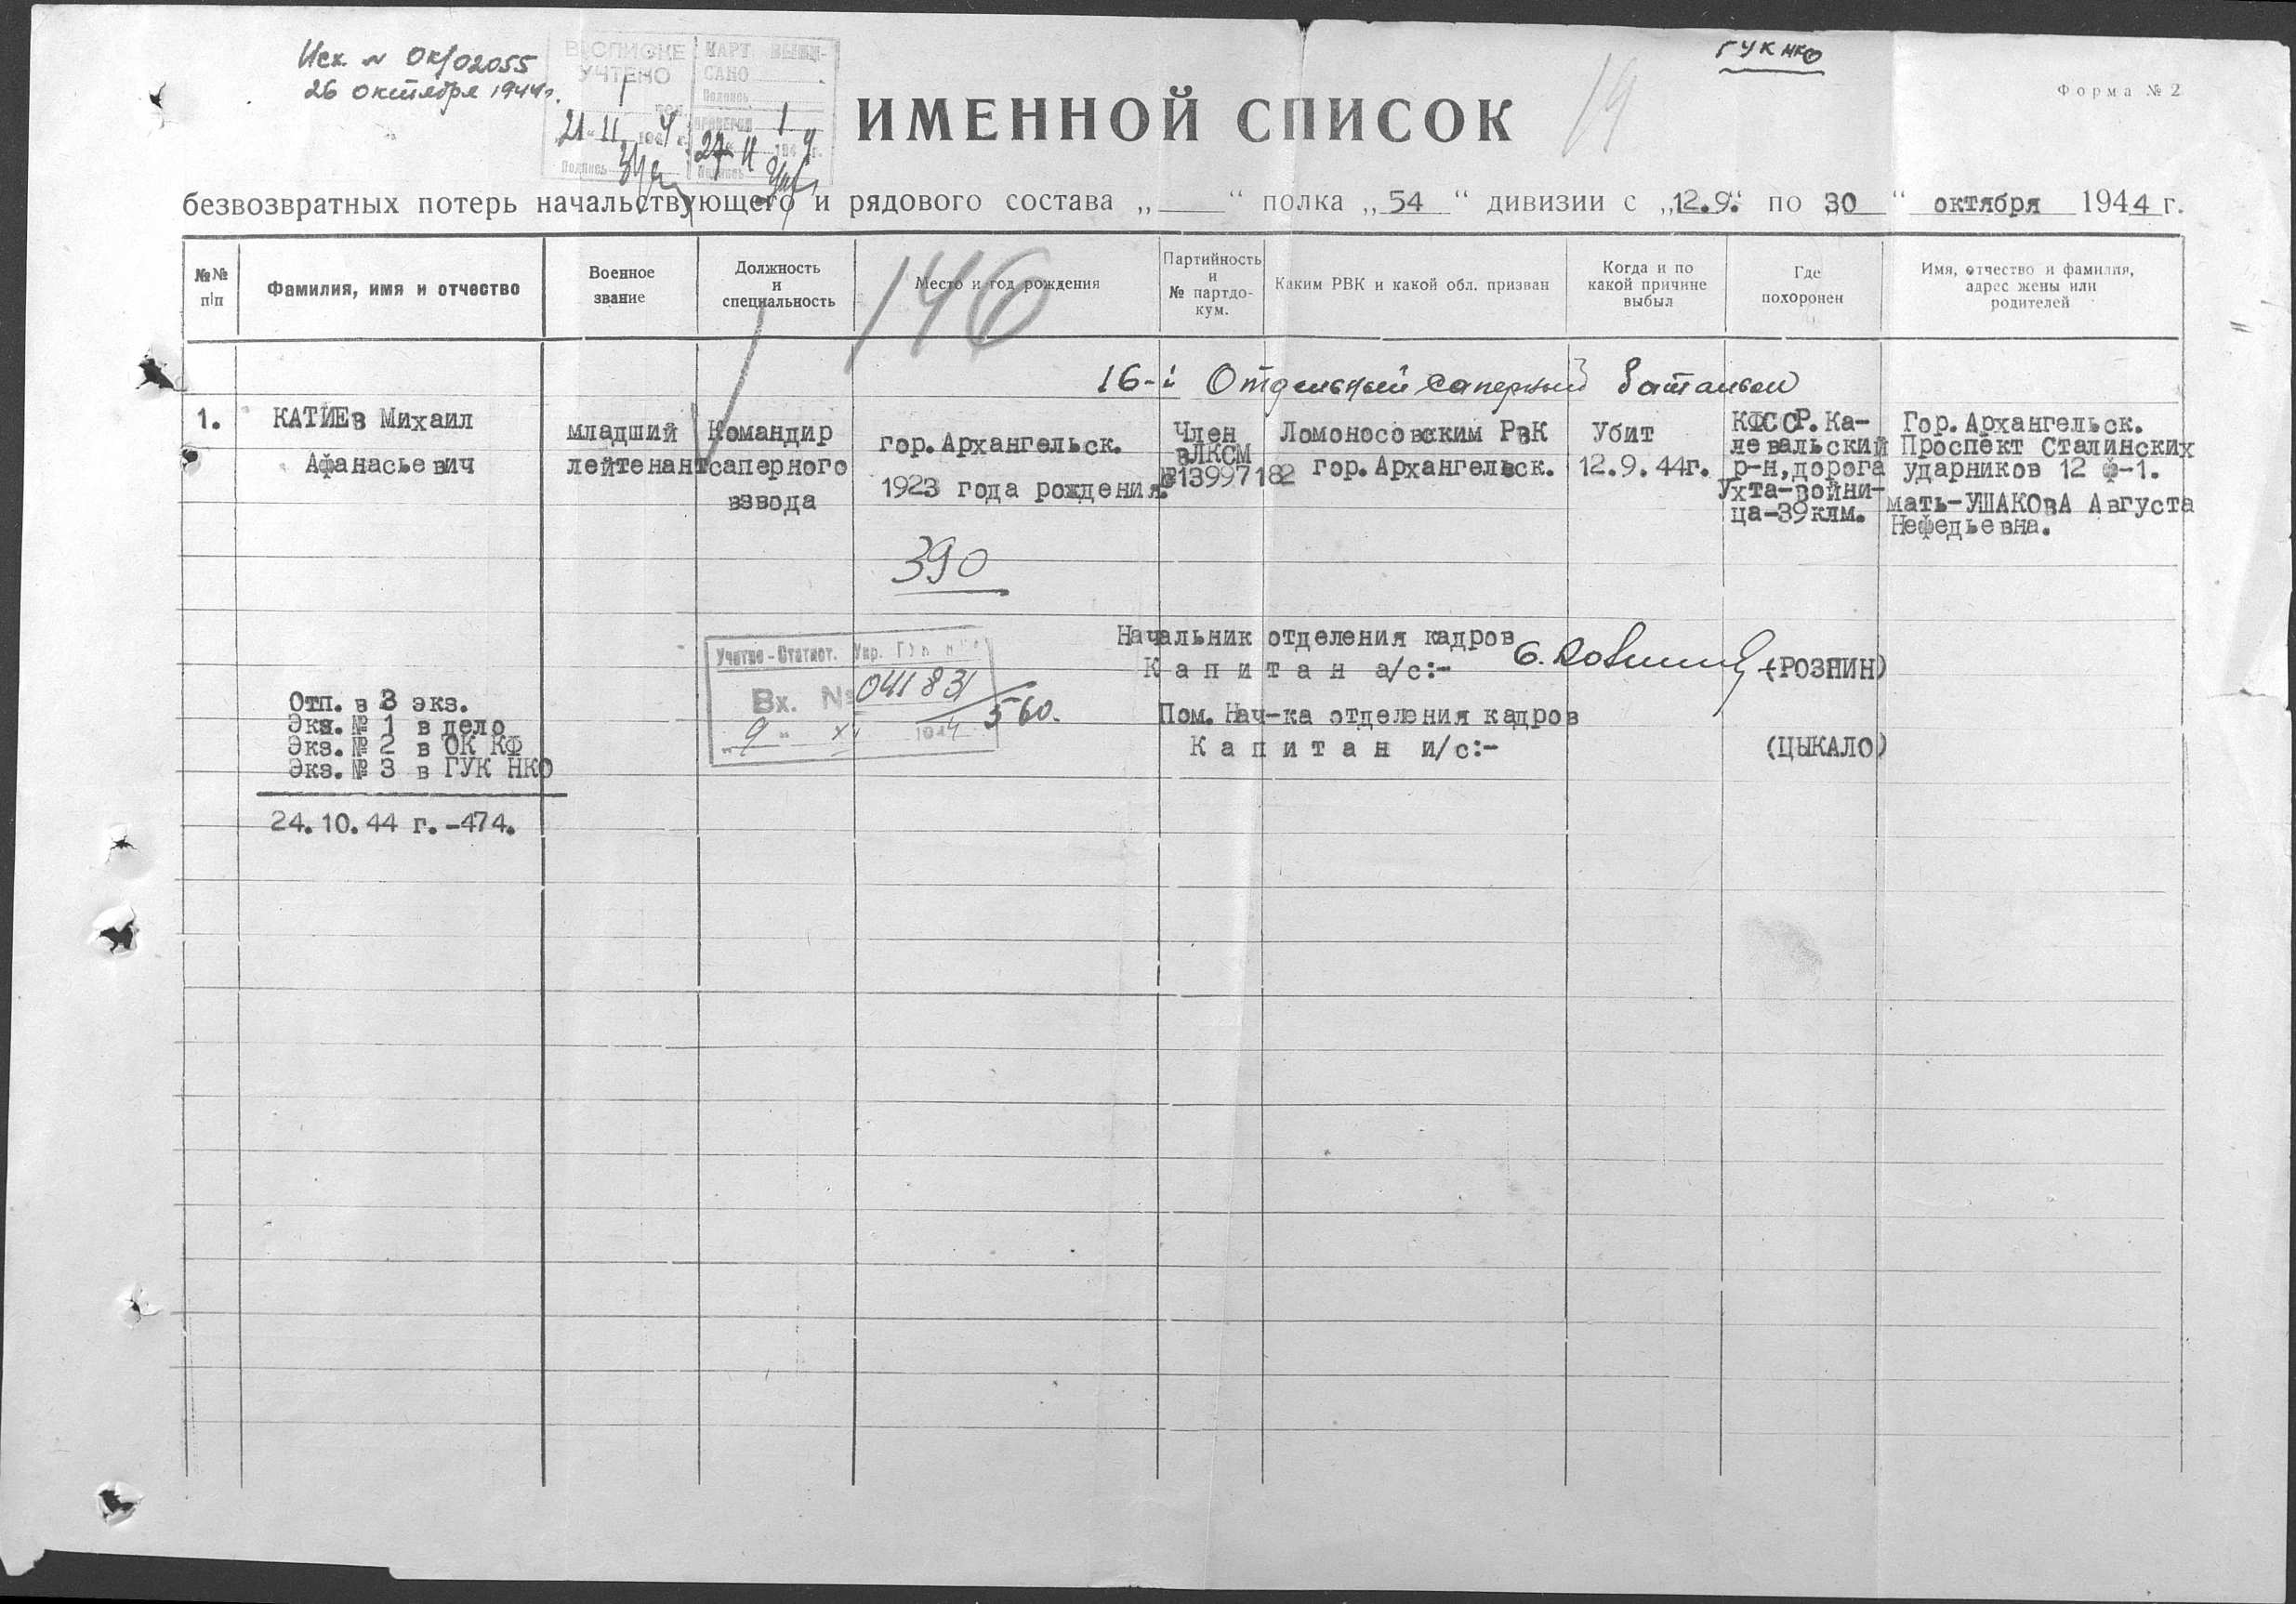 Исх № ОК/02055
26 октября 1944г.
В СПИСКЕ
УЧТЕНО
1
21 11 1944 г.
Подпись
КАРТ ВЫПИ-
САНО
Подпись
ПРОВЕРЕН 1
27 11 1944 г.
Подпись
ГУК НКО
Форма № 2
19
ИМЕННОЙ СПИСОК
безвозвратных потерь начальствующего и рядового состава „ “ полка „54“ дивизии с „12.9.“ по 30 “ октября 1944 г.
№№ п/п
Фамилия, имя и отчество
Военное звание
Должность и специальность
Место и год рождения
Партийность и № партдо-кум.
Каким РВК и какой обл. призван
Когда и по какой причине выбыл
Где похоронен
Имя, отчество и фамилия, адрес жены или родителей
146
16-й Отдельный саперный батальон
1.
КАТИЕв Михаил
Афанасьевич
младший
лейтенант
Командир
саперного
взвода
гор.Архангельск.
1923 года рождения.
Член
вЛКСМ
№13997182
Ломоносовским РвК
гор.Архангельск.
Убит
12.9.44г.
КФССР.Ка-
левальский
р-н,дорога
Ухта-войни-
ца-39клм.
Гор.Архангельск.
Проспект Сталинских
ударников 12 ф-1.
мать-УШАКОвА Августа
Нефедьевна.
390
Начальник отделения кадров
Капитан а/с:-
(РОЗНИН)
Пом.Нач-ка отделения кадров
Капитан и/с:-
(ЦЫКАЛО)
Учетно-Статист. Упр. ГУК
Вх. № 041831
560.
„9“ XI 1944
Отп. в 3 экз.
Экз.№ 1 в дело
Экз.№ 2 в ОК КФ
Экз.№ 3 в ГУК НКО
24.10.44 г.-474.